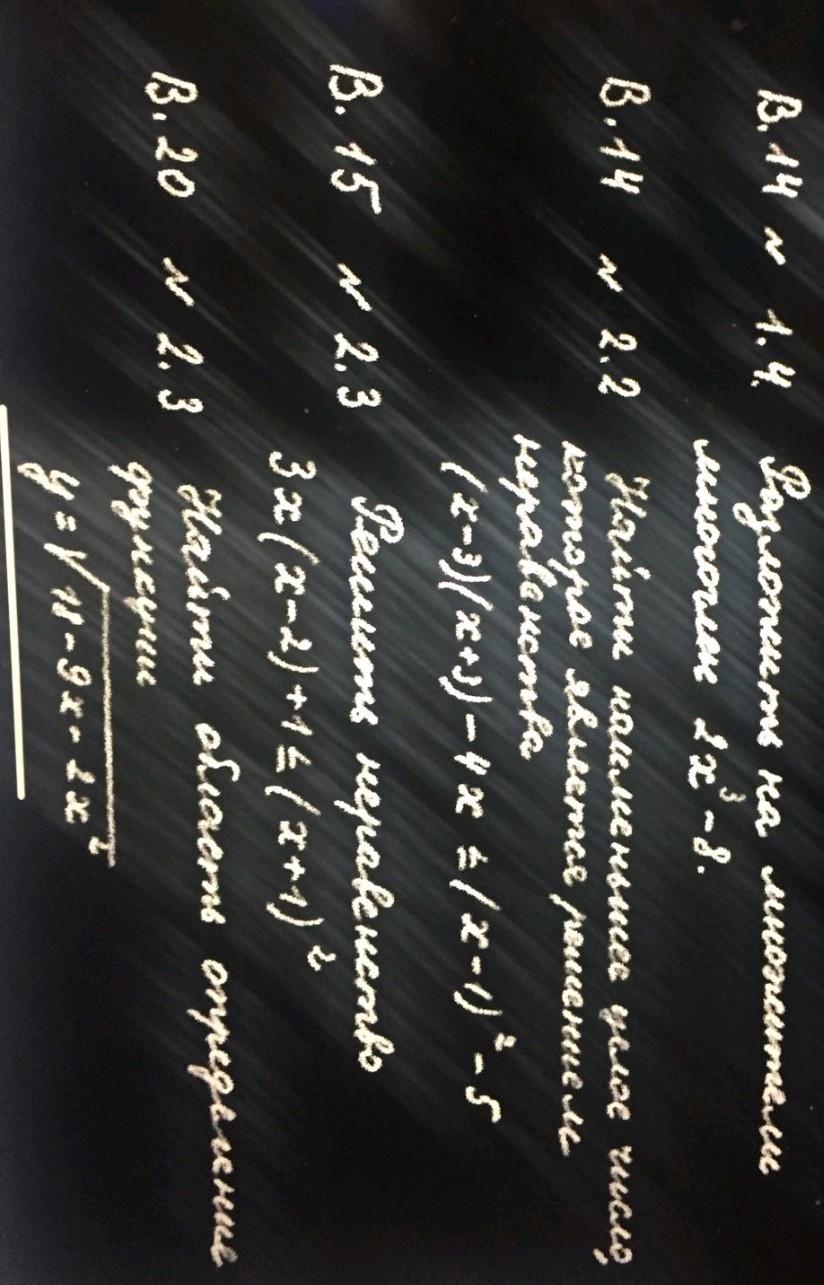 В. 14 N 1.4. Разложить на множители
многочлен 2x³ - 8.
В. 14 N 2.2 Найти наименьшее целое число,
которое является решением
неравенства
(x-3)(x+3) - 4x ≤ (x-1)² - 5
В. 15 N 2.3 Решить неравенство
3x(x-2)+1 ≤ (x+1)²
В. 20 N 2.3 Найти область определение
функции
y = √18 - 9x - 2x²